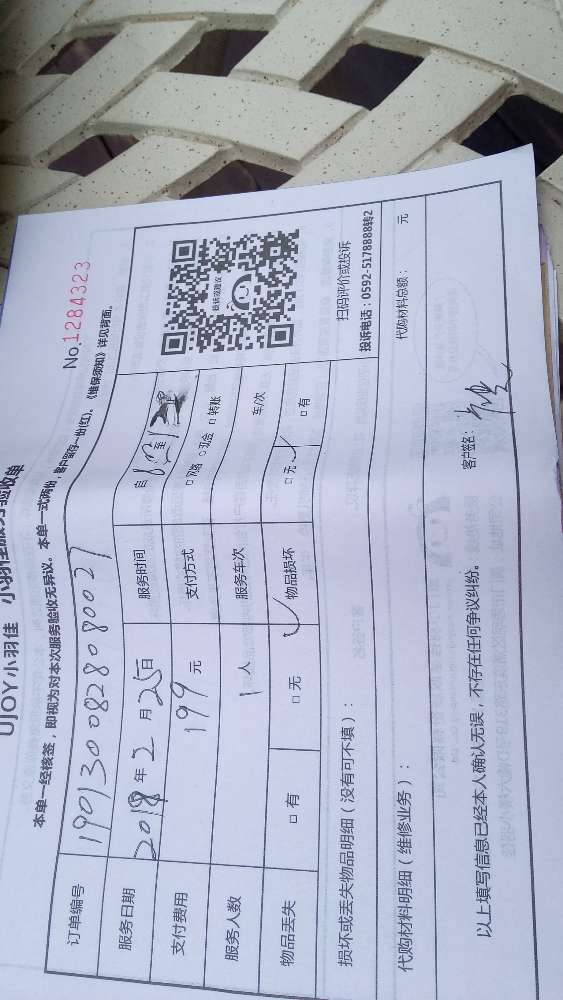 UJOY小羽佳 小羽佳服务验收单
No.1284323
本单一经核签,即视为对本次服务验收无异议。本单一式两份,客户留存一份(红)。《维保须知》详见背面。
订单编号 1901300828080027
服务日期 2019年2月25日 服务时间 自 至
支付费用 199元 支付方式 □网络 □现金 □转账
服务人数 1人 服务车次 车/次
物品丢失 □有 □无 物品损坏 □无 □有
投诉或建议
扫码评价或投诉
投诉电话:0592-5178888转2
损坏或丢失物品明细(没有可不填):
代购材料明细(维修业务): 代购材料总额: 元
以上填写信息已经本人确认无误,不存在任何争议纠纷。 客户签名: